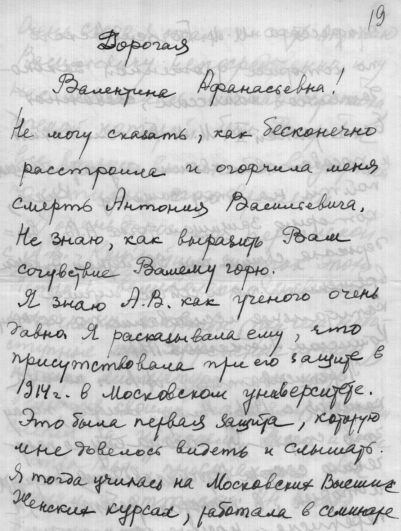 19
Дорогая
Валентина Афанасьевна!
Не могу сказать, как бесконечно
расстроила и огорчила меня
смерть Антония Васильевича.
Не знаю, как выразить Вам
сочувствие Вашему горю.
Я знаю А.В. как ученого очень
давно. Я рассказывала ему, что
присутствовала при его защите в
1914 г. в Московском университете.
Это была первая защита, которую
мне довелось видеть и слышать.
Я тогда училась на Московских Высших
Женских курсах, работала в семинаре